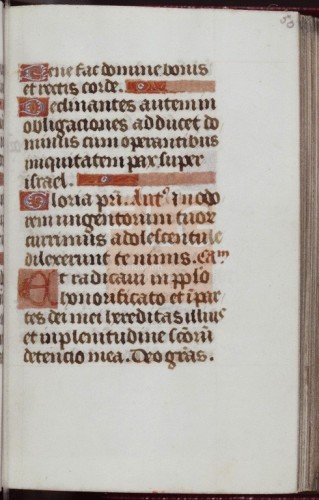 50
Bene fac domine bonis
et rectis corde.
Declinantes autem in
obligaciones adducet do
minus cum operantibus
iniquitatem pax super
israel.
Gloria pri. Anto. In odo
rem ungentorum tuor
currimus adolescentule
dilexerunt te nimis. Cam
Et radicavi in pplo
honorificato et i par
tes dei mei hereditas illius
et in plenitudine scoru
detencio mea. Deo gras.